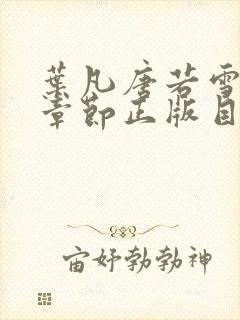 葉凡唐若雪
章節正版目
宙妤勃勃神